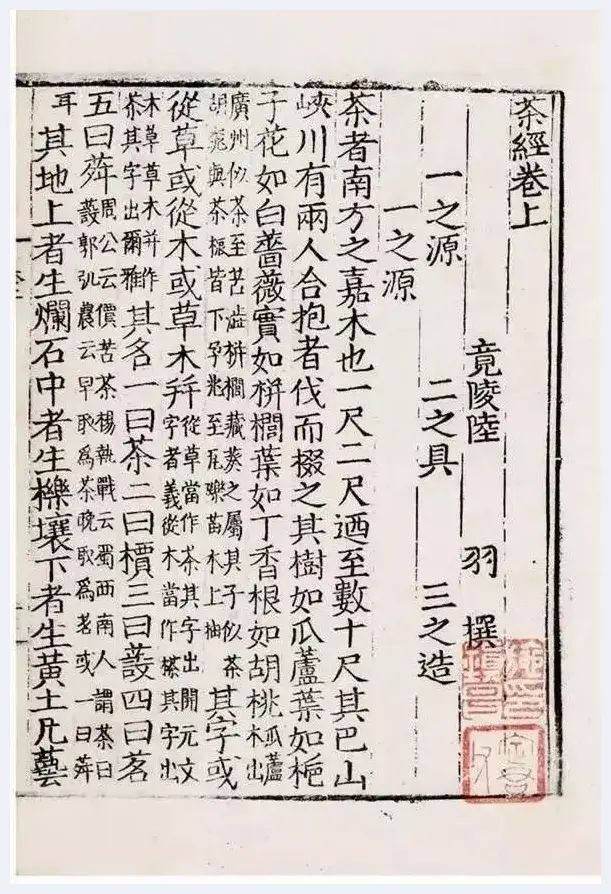 茶經卷上
竟陵陸 羽 撰
一之源 二之具 三之造
一之源
茶者南方之嘉木也一尺二尺迺至數十尺其巴山
峽川有兩人合抱者伐而掇之其樹如瓜蘆葉如梔
子花如白薔薇實如栟櫚葉如丁香根如胡桃瓜蘆木出
廣州似茶至苦澁栟櫚藏葵之屬其子似茶胡桃與茶根皆下孕兆至瓦礫苗木上抽其字或
從草或從木或草木幷從草當作茶其字出開元文字者義從木當作㯈其字出
本草草木并作荼其字出爾雅其名一曰茶二曰檟三曰蔎四曰茗
五曰荈周公云檟苦茶楊執戟云蜀西南人謂茶曰蔎郭弘農云早取爲茶晚取爲茗或一曰荈
耳其地上者生爛石中者生櫟壤下者生黃土凡藝